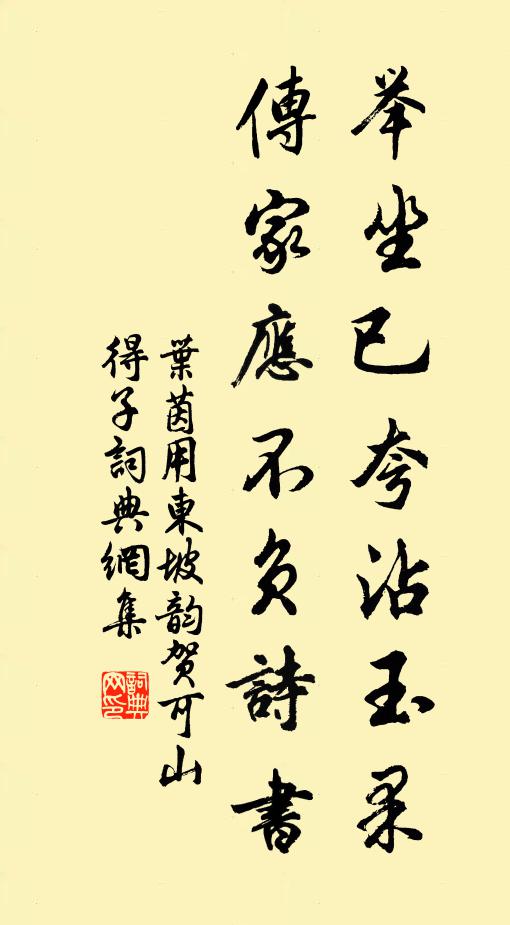 举坐已夸沾玉果
傳家應不负詩書
葉茵用東坡韵贺可山
得子詞典網集
詞典网印